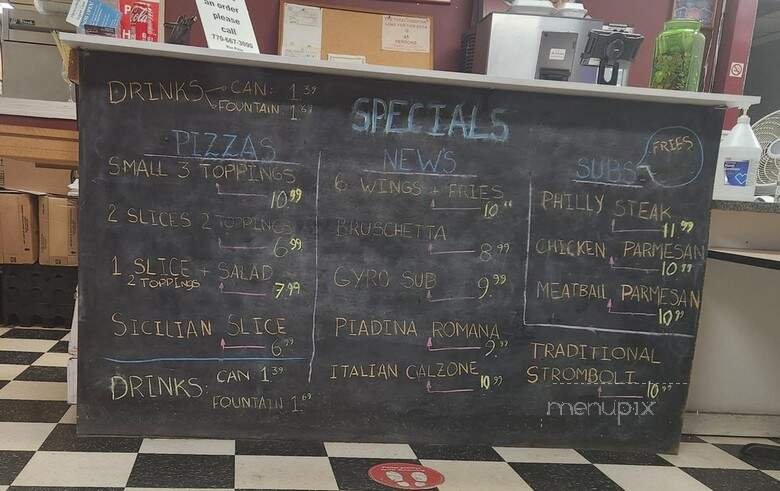 an order
please
call
770-667-3000
Coca-Cola
DRINKS CAN: 1.39
FOUNTAIN 1.69
SPECIALS
PIZZAS
SMALL 3 TOPPINGS
10.99
2 SLICES 2 TOPPINGS
6.99
1 SLICE + SALAD
2 TOPPINGS
7.99
SICILIAN SLICE
6.99
DRINKS: CAN 1.39
FOUNTAIN 1.69
NEWS
6 WINGS + FRIES
10.99
BRUSCHETTA
8.99
GYRO SUB
9.99
PIADINA ROMANA
9.99
ITALIAN CALZONE
10.99
SUBS
FRIES
PHILLY STEAK
11.99
CHICKEN PARMESAN
10.99
MEATBALL PARMESAN
10.99
TRADITIONAL
STROMBOLI
10.99
menupix